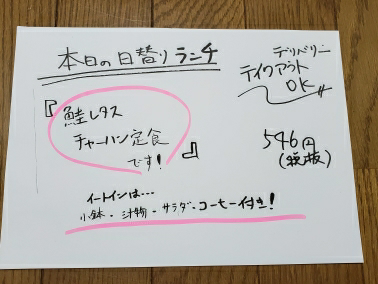 本日の日替りランチ
デリバリー
テイクアウト
OK
『鮭レタス
チャーハン定食
です!』
546円
(税抜)
イートインは…
小鉢・汁物・サラダ・コーヒー付き!